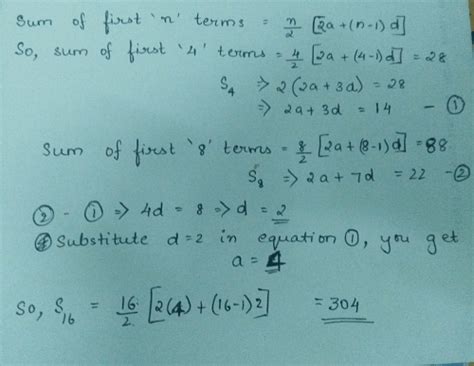 Sum of first 'n' terms = n/2 [2a + (n-1) d]
So, sum of first '4' terms = 4/2 [2a + (4-1)d] = 28
S₄ ⇒ 2(2a + 3d) = 28
⇒ 2a + 3d = 14 - ①
Sum of first '8' terms = 8/2 [2a + (8-1)d] = 88
S₈ ⇒ 2a + 7d = 22 - ②
② - ① ⇒ 4d = 8 ⇒ d = 2
Substitute d = 2 in equation ①, you get
a = 4
So, S₁₆ = 16/2 [2(4) + (16-1)2] = 304